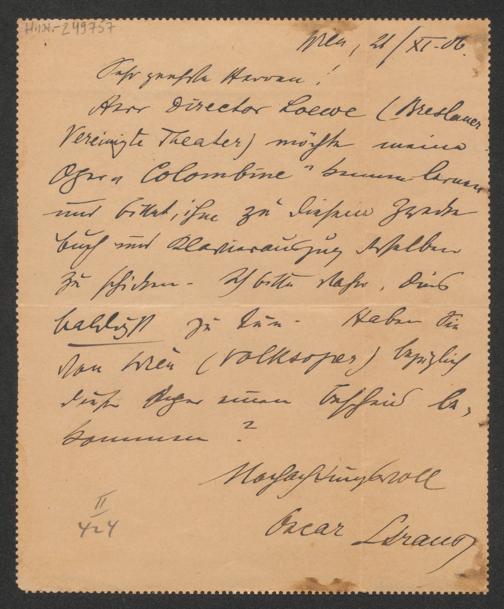 H.I.N.-249757
Wien, 21/XI. 06.
Sehr geehrte Herren!
Herr Director Loewe (Breslauer
Vereinigte Theater) möchte meine
Oper „Colombine" kennen lernen
und bittet, ihm zu diesem Zwecke
Buch und Klavierauszug derselben
zu schicken. Ich bitte Sie, dies
baldigst zu tun. Haben Sie
von Wien (Volksoper) bezüglich
dieser Oper einen Bescheid be-
kommen?
Hochachtungsvoll
Oscar Straus
II
424